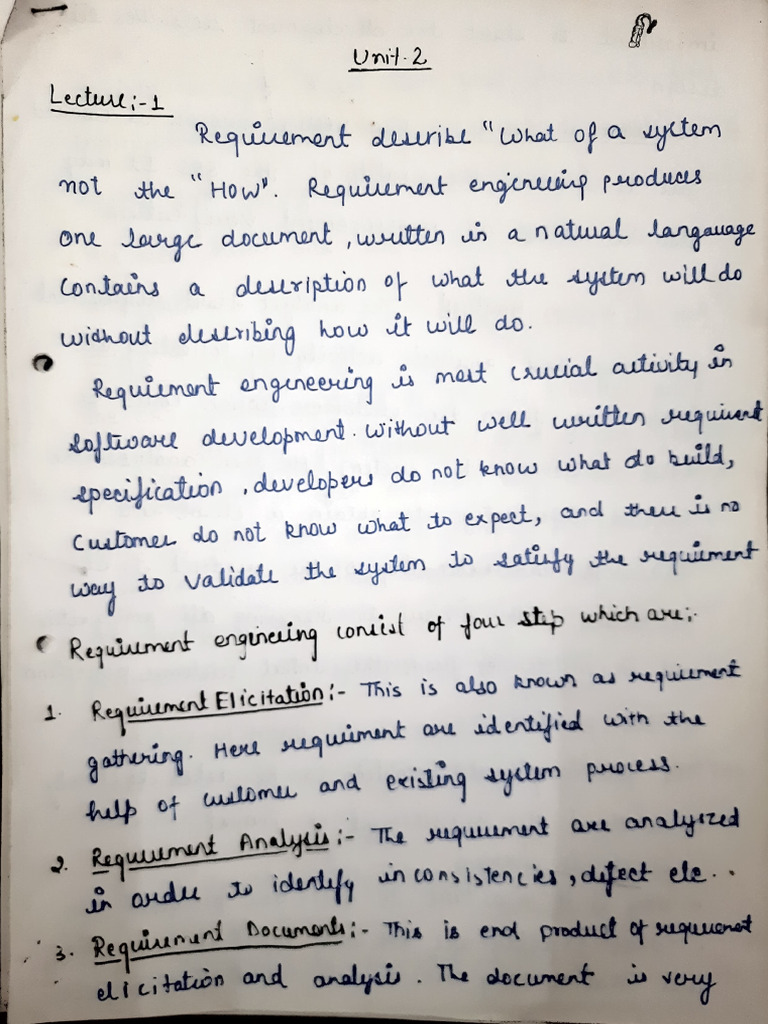 Unit-2
Lecture:-1
Requirement describe "What of a system
not the "How". Requirement engineering produces
one large document, written in a natural langauage
contains a description of what the system will do
without describing how it will do.
Requirement engineering is most crucial activity in
software development. without well written requirement
specification, developers do not know what do build,
customer do not know what to expect, and there is no
way to validate the system to satisfy the requirement
Requirement engineering consist of four step which are:-
1. Requirement Elicitation:- This is also known as requirement
gathering. Here requirement are identified with the
help of customer and existing system process.
2. Requirement Analysis:- The requirement are analyzed
in order to identify inconsistencies, defect etc..
3. Requirement Documents:- This is end product of requirement
elicitation and analysis. The document is very